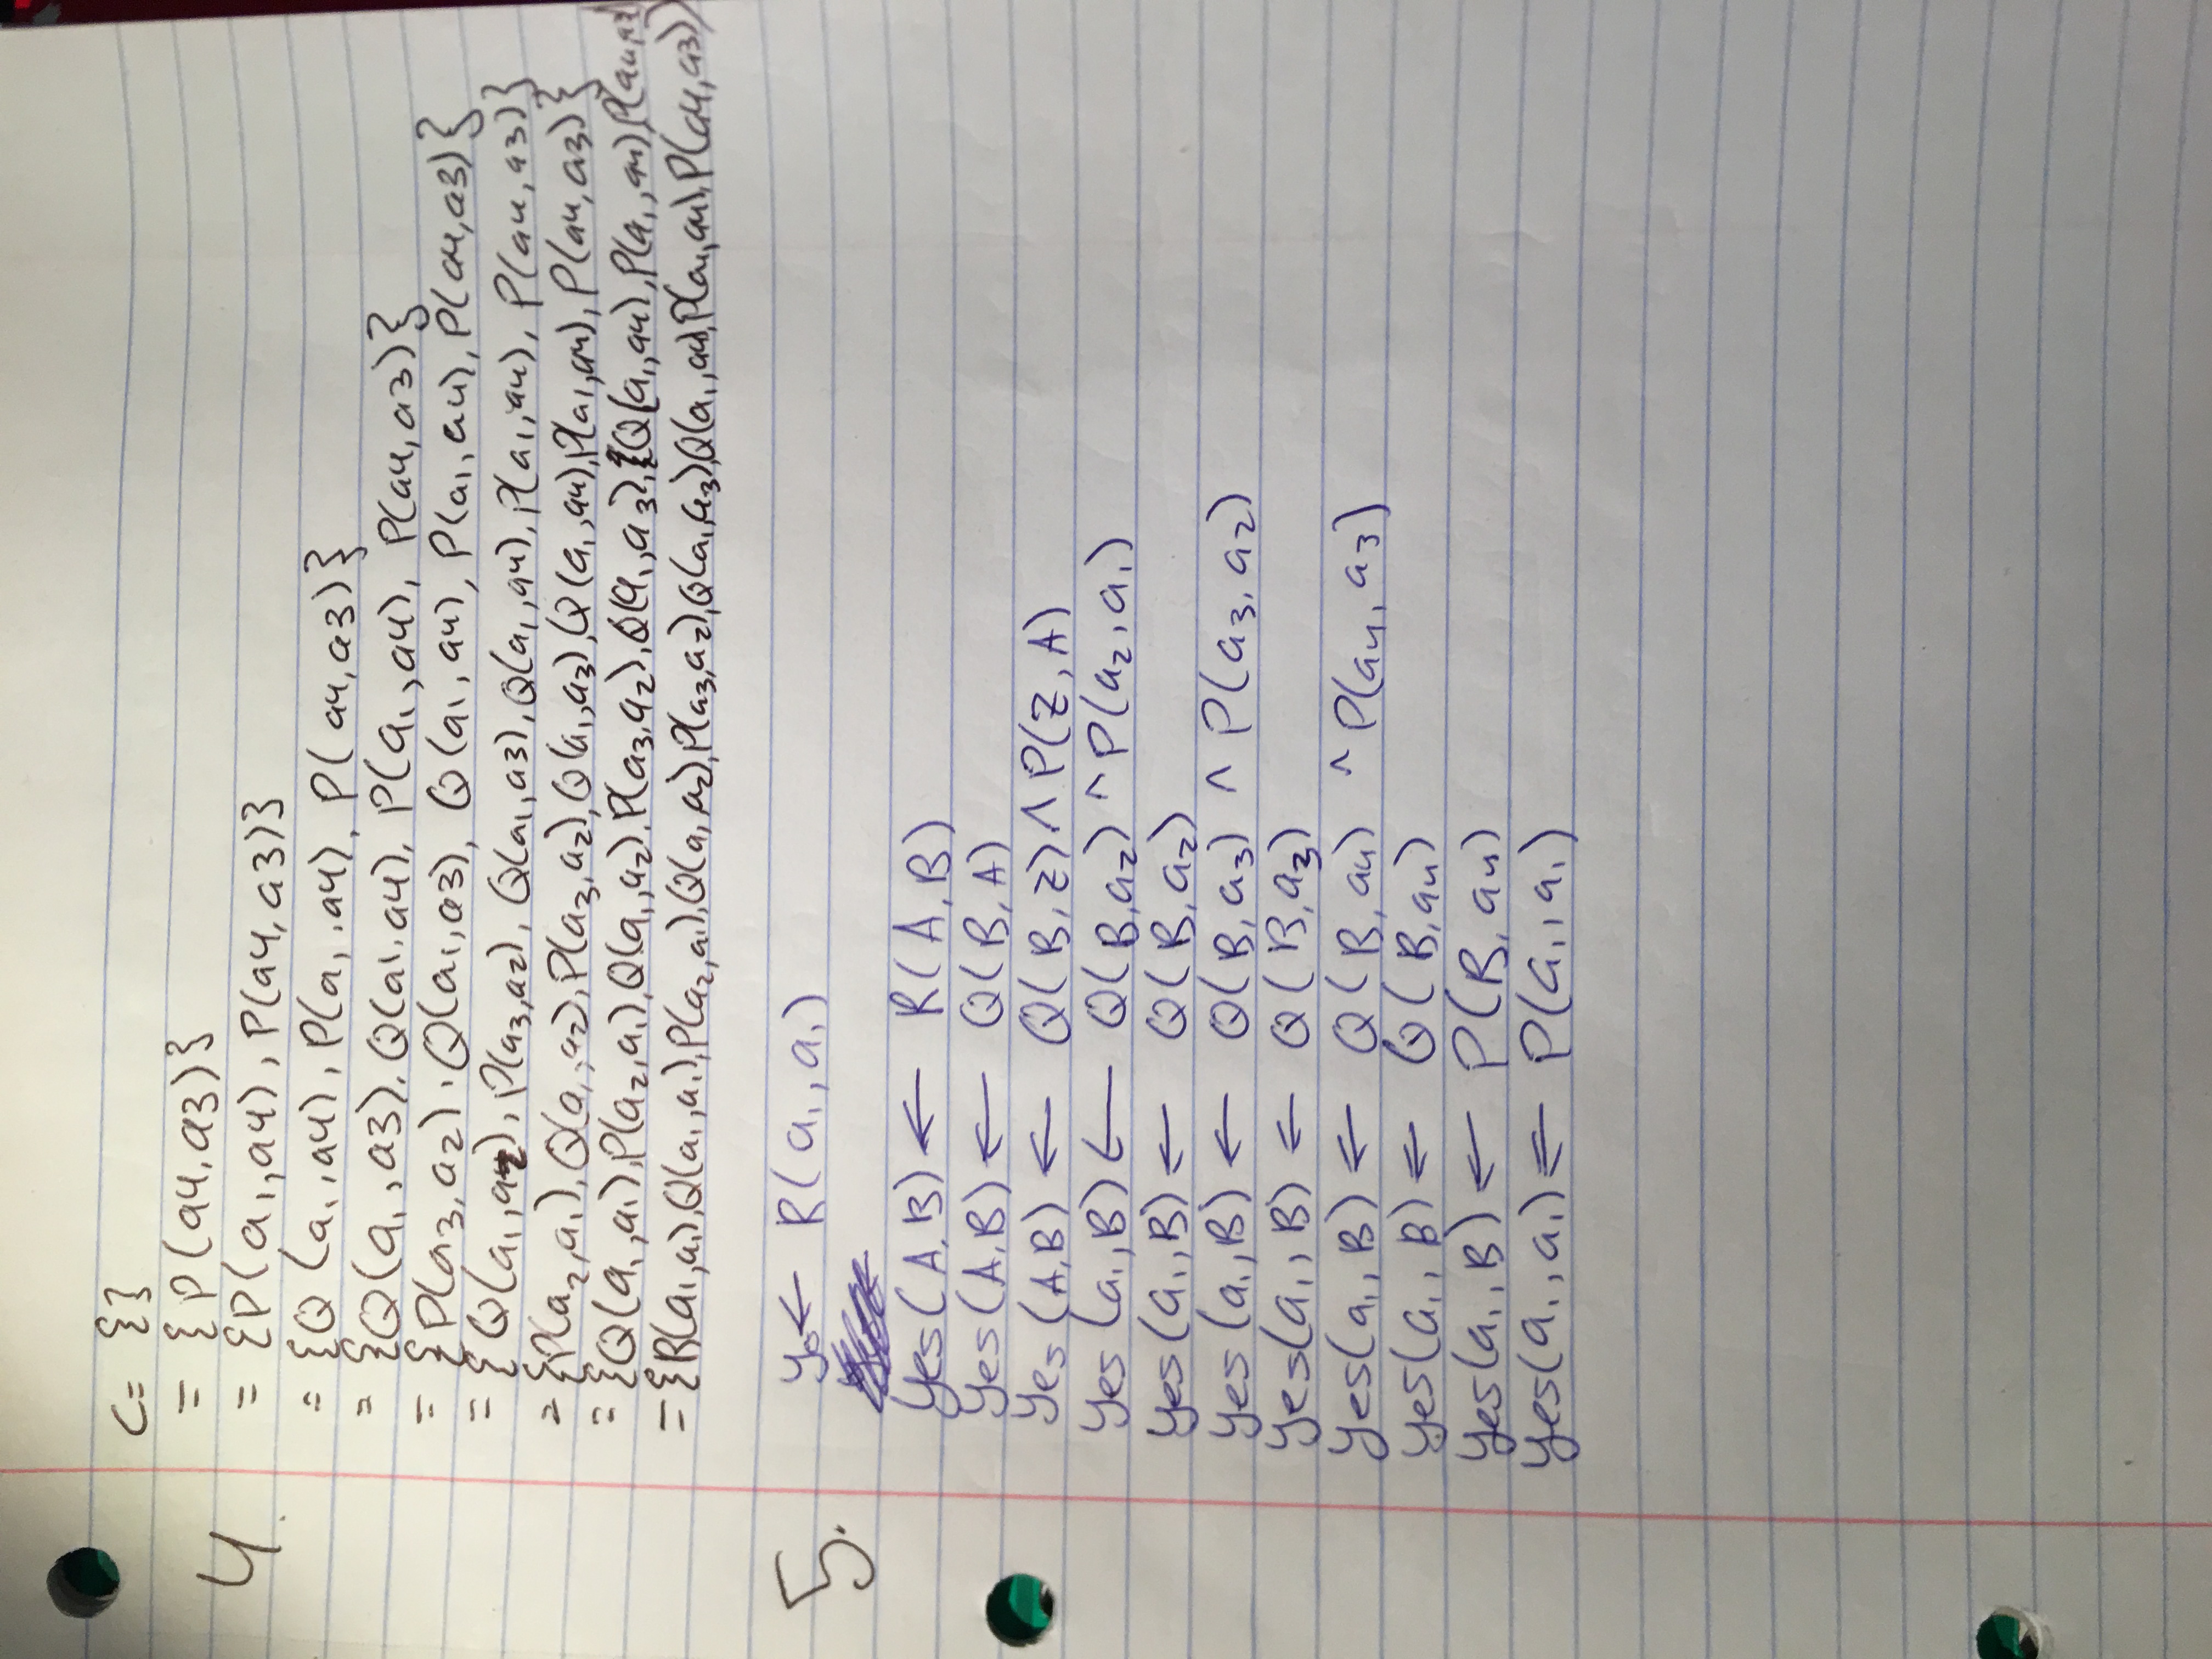 C= {}
= {P(a4,a3)}
4.
= {P(a1,a4), P(a4,a3)}
= {Q(a1,a4), P(a1,a4), P(a4,a3)}
= {Q(a1,a3), Q(a1,a4), P(a1,a4), P(a4,a3)}
= {P(a3,a2), Q(a1,a3), Q(a1,a4), P(a1,a4), P(a4,a3)}
= {Q(a1,a2), P(a3,a2), Q(a1,a3), Q(a1,a4), P(a1,a4), P(a4,a3)}
= {P(a2,a1), Q(a1,a2), P(a3,a2), Q(a1,a3), Q(a1,a4), P(a1,a4), P(a4,a3)}
= {Q(a1,a1), P(a2,a1), Q(a1,a2), P(a3,a2), Q(a1,a3), {Q(a1,a4), P(a1,a4), P(a4,a3)
= {R(a1,a1), Q(a1,a1), P(a2,a1), Q(a1,a2), P(a3,a2), Q(a1,a3), Q(a1,a4), P(a1,a4), P(a4,a3)}
5. y0 ← R(a1,a1)
Yes(A,B) ← R(A,B)
Yes(A,B) ← Q(B,A)
Yes(A,B) ← Q(B,Z) ∧ P(Z,A)
Yes(a1,B) ← Q(B,a2) ∧ P(a2,a1)
Yes(a1,B) ← Q(B,a2)
Yes(a1,B) ← Q(B,a3) ∧ P(a3,a2)
Yes(a1,B) ← Q(B,a3)
Yes(a1,B) ← Q(B,a4) ∧ P(a4,a3)
Yes(a1,B) ← Q(B,a4)
Yes(a1,B) ← P(B,a4)
Yes(a1,a1) ← P(a1,a1)